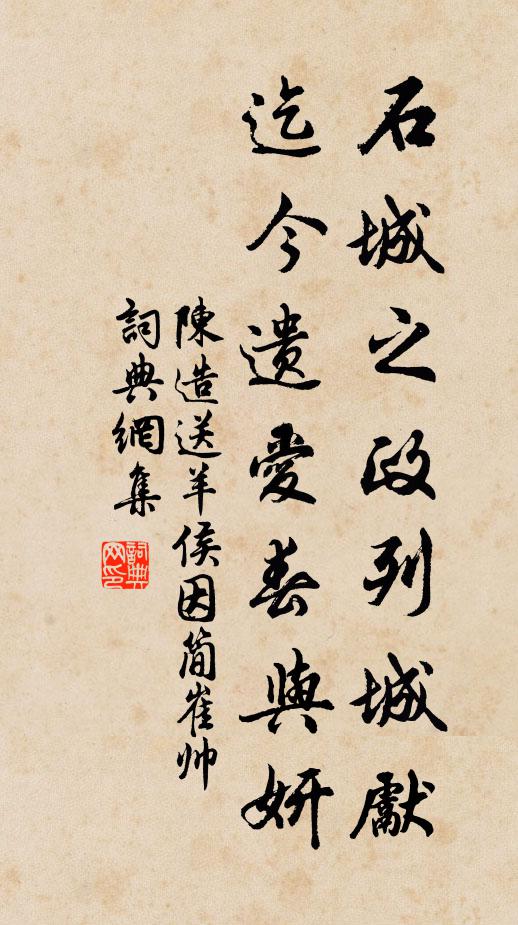 石城之政列城獻
迄今遺愛春與妍
陳造送羊侯因簡崔帥
詞典網集
詞典网印